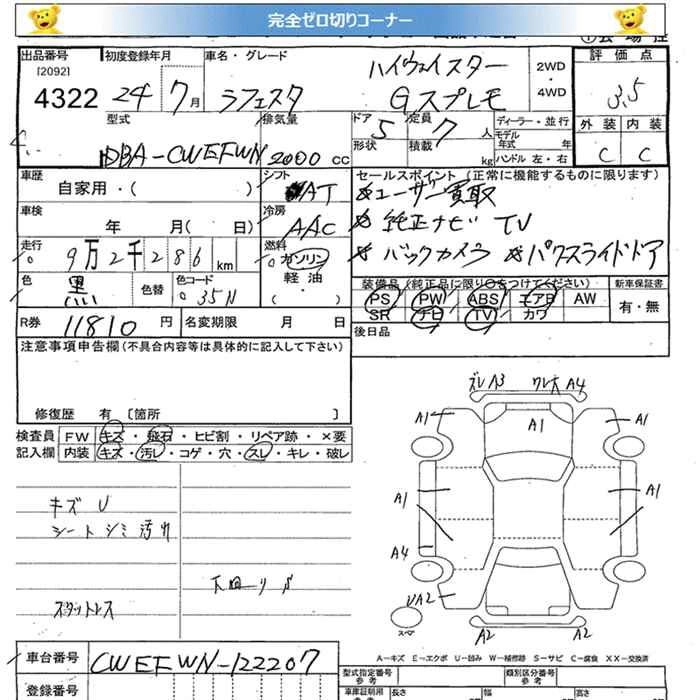 完全ゼロ切りコーナー
出品番号
[2092]
4322
初度登録年月
24 7月
車名・グレード
ラフェスタ
ハイウェイスター
Gスプレモ
2WD
・
4WD
評価点
3.5
外装 内装
C C
型式
DBA-CWEFWN
排気量
2000 CC
ドア
5
形状
定員
7人
積載 kg
ディーラー・並行
モデル
年式 年
ハンドル 左・右
車歴
自家用・( )
シフト
AT
車検
年 月( 日)
冷房
AAC
走行
9万2千286km
燃料
ガソリン
軽油
・( )
色
黒
色替
色コード
35N
R券
11810円
名変期限 月 日
セールスポイント (正常に機能するものに限ります)
ユーザー買取
純正ナビ TV
バックカメラ パワースライドドア
装備品 (純正品に限り○をつけてください)
新車保証書
PS PW ABS エアB AW
有・無
SR ナビ TV カワ
後日品
注意事項申告欄(不具合内容等は具体的に記入して下さい)
修復歴 有 〔箇所 〕
検査員
記入欄
FW キズ・飛石・ヒビ割・リペア跡・×要
内装 キズ・汚レ・コゲ・穴・スレ・キレ・破レ
キズ U
シートシミ汚れ
スタットレス
ズレA3 ワレ大 A4
A1 A1 A1
A1 A1
A4
UA2
スペア
A2 A2
A-キズ E-エクボ U-凹み W-補修跡 S-サビ C-腐食 XX-交換済
車台番号
CWEFWN-122207
登録番号
型式指定番号
参考
類別区分番号
参考
車庫証明用
長さ 幅 高さ